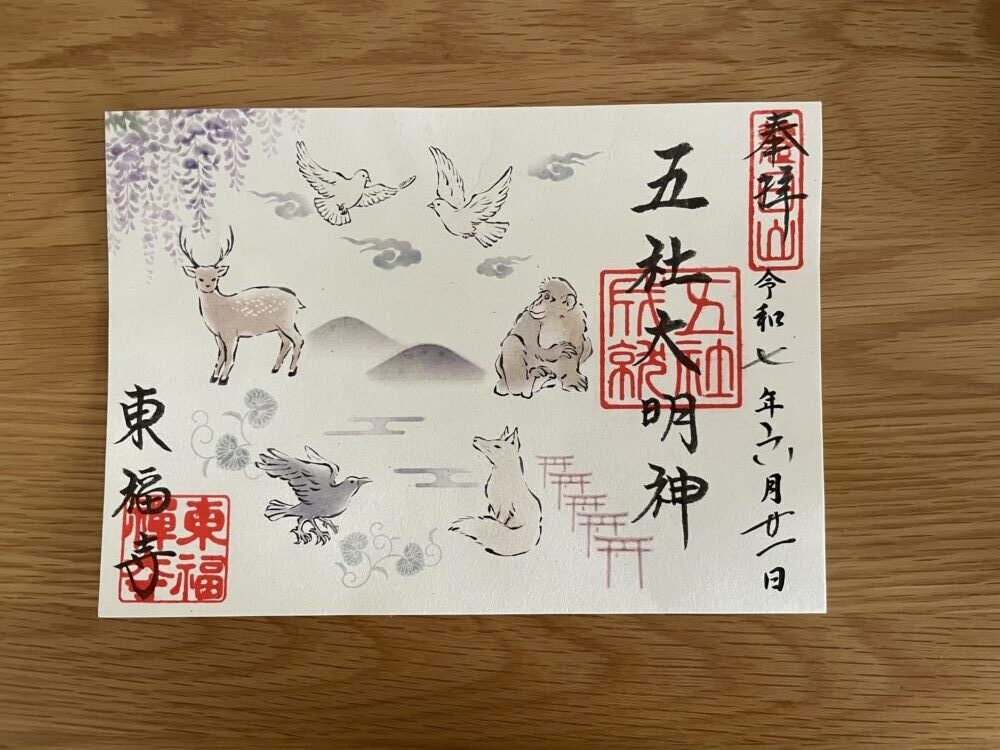 奉拝
令和七年六月廿一日
五社大明神
五社
成就
東福寺
東福
禅寺